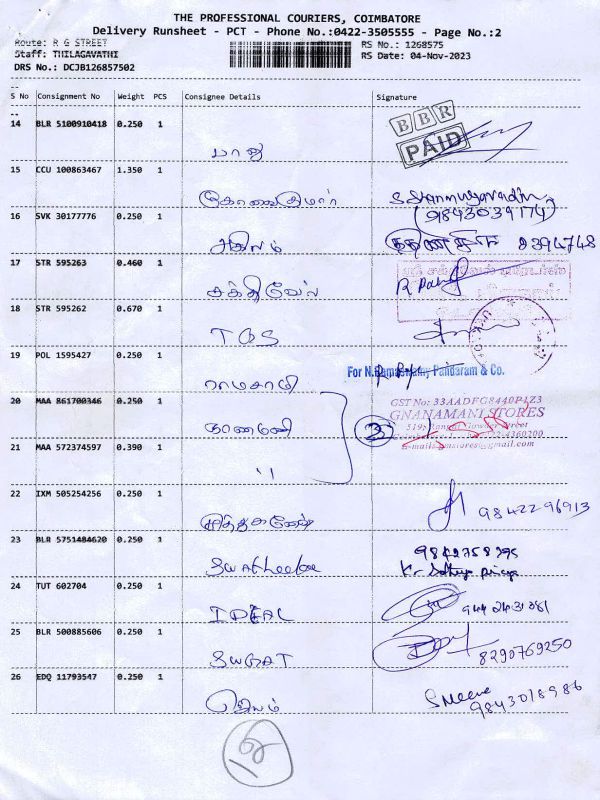 THE PROFESSIONAL COURIERS, COIMBATORE
Delivery Runsheet - PCT - Phone No.:0422-3505555 - Page No.:2
Route: R G STREET
RS No.: 1268575
Staff: THILAGAVATHI
RS Date: 04-Nov-2023
DRS No.: DCJB126857502
S No Consignment No Weight PCS Consignee Details Signature
14 BLR 5100910418 0.250 1
BBR
PAID
ராஜ
15 CCU 100863467 1.350 1
கோவைகுமார்
S Shanmugavadivu
(9843039174)
16 SVK 30177776 0.250 1
அகிலம்
2394748
17 STR 595263 0.460 1
சக்திவேல்
18 STR 595262 0.670 1
TOS
19 POL 1595427 0.250 1
For N.Ramaswamy Pandaram & Co.
ராமசாமி
20 MAA 861700346 0.250 1
ஞானமணி
GST No: 33AADFG8440P1Z3
GNANAMANI STORES
21 MAA 572374597 0.390 1
"
22 IXM 505254256 0.250 1
9842296913
23 BLR 5751484620 0.250 1
9842758395
24 TUT 602704 0.250 1
IDEAL
25 BLR 500885606 0.250 1
8290769250
26 EDQ 11793547 0.250 1
ஜெயம்
S Meena
9843018986